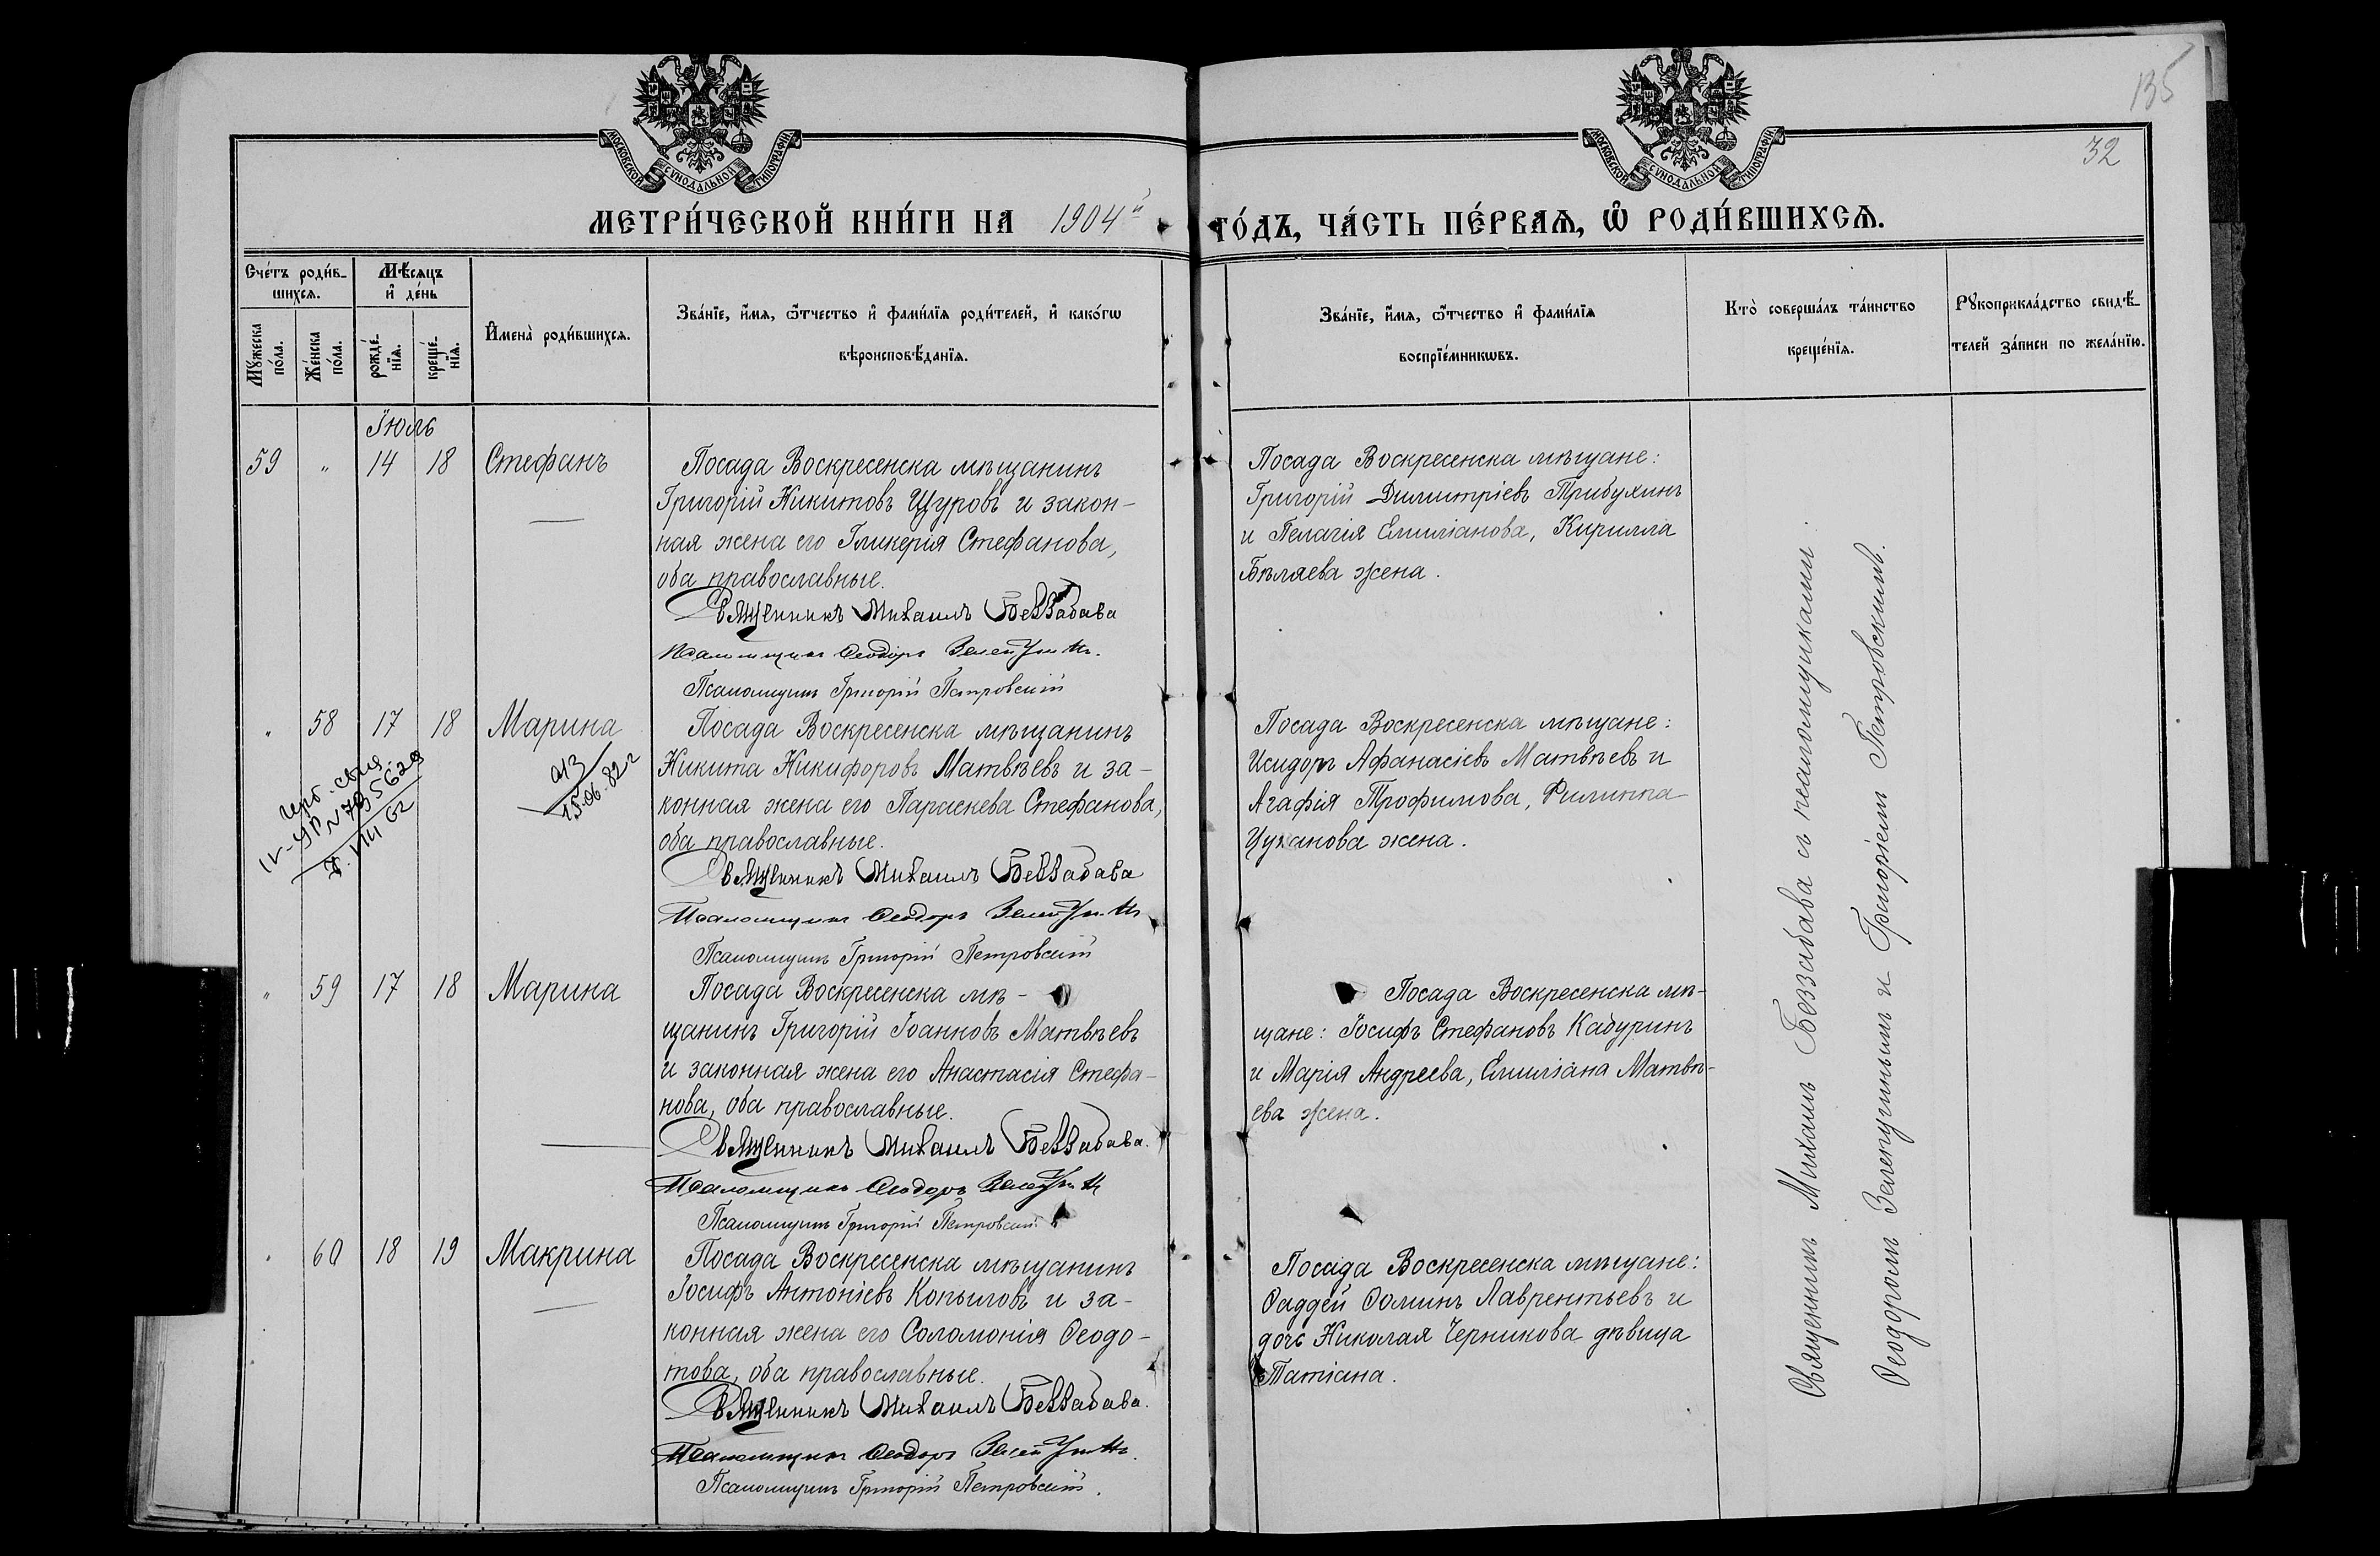 135
32
МОСКОВСКОЙ СѴНОДАЛЬНОЙ ТИПОГРАФІИ
МОСКОВСКОЙ СѴНОДАЛЬНОЙ ТИПОГРАФІИ
МЕТРИ́ЧЕСКОЙ КНИ́ГИ НА 1904й ГО́ДЪ, ЧА́СТЬ ПЕ́РВАѦ, Ѡ҆ РОДИ́ВШИХСѦ.
Сче́тъ роди́в-
шихсѧ.
Мꙋ́жеска
по́ла.
Же́нска
по́ла.
Мѣ́сѧцъ
и҆ де́нь
рожде́-
нїѧ.
креще́-
нїѧ.
И҆мена̀ роди́вшихсѧ.
Зва́нїе, и҆́мѧ, ѻ҆́тчество и҆ фами́лїѧ роди́телей, и҆ како́гѡ
вѣроисповѣ́данїѧ.
Зва́нїе, и҆́мѧ, ѻ҆́тчество и҆ фами́лїѧ
воспрїе́мникѡвъ.
Кто̀ соверша́лъ та́инство
креще́нїѧ.
Рꙋкоприкла́дство свидѣ́-
телей за́писи по жела́нїю.
Іюль
59 " 14 18 Стефанъ
Посада Воскресенска мѣщанинъ
Григорій Никитовъ Щуровъ и закон-
ная жена его Гликерія Стефанова,
оба православные.
Священникъ Михаилъ Беззабава
Псаломщикъ Ѳеодоръ
Псаломщикъ Григорій Петровскій
Посада Воскресенска мѣщане:
Григорій Димитріевъ Трибухинъ
и Пелагія Емиліанова, Кирилла
Бѣляева жена.
" 58 17 18 Марина
15.06.82г
Посада Воскресенска мѣщанинъ
Никита Никифоровъ Матвѣевъ и за-
конная жена его Параскева Стефанова,
оба православные.
Священникъ Михаилъ Беззабава
Псаломщикъ Ѳеодоръ
Псаломщикъ Григорій Петровскій
Посада Воскресенска мѣщане:
Исидоръ Афанасіевъ Матвѣевъ и
Агафія Трофимова, Филиппа
Цуканова жена.
" 59 17 18 Марина
Посада Воскресенска мѣ-
щанинъ Григорій Іоанновъ Матвѣевъ
и законная жена его Анастасія Стефа-
нова, оба православные.
Священникъ Михаилъ Беззабава.
Псаломщикъ Ѳеодоръ
Псаломщикъ Григорій Петровскій
Посада Воскресенска мѣ-
щане: Іосифъ Стефановъ Кабуринъ
и Марія Андреева, Емиліана Матвѣ-
ева жена.
" 60 18 19 Макрина
Посада Воскресенска мѣщанинъ
Іосифъ Антоніевъ Копыловъ и за-
конная жена его Соломонія Ѳеодо-
това, оба православные.
Священникъ Михаилъ Беззабава.
Псаломщикъ Ѳеодоръ
Псаломщикъ Григорій Петровскій.
Посада Воскресенска мѣщане:
Ѳаддей Ѳоминъ Лаврентьевъ и
дочь Николая Черникова дѣвица
Татіана.
Священникъ Михаилъ Беззабава съ псаломщиками
Ѳеодоромъ Зелепугинымъ и Григоріемъ Петровскимъ.